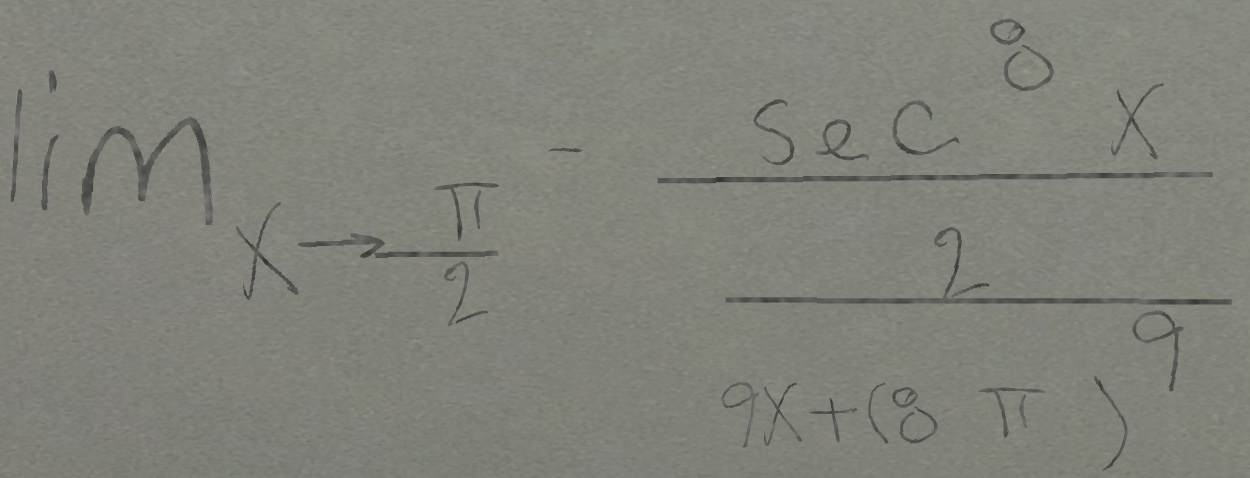 \lim_{x \to \frac{\pi}{2}^{-}} \frac{\sec^{8} x}{\frac{2}{9x+(8\pi)^{9}}}